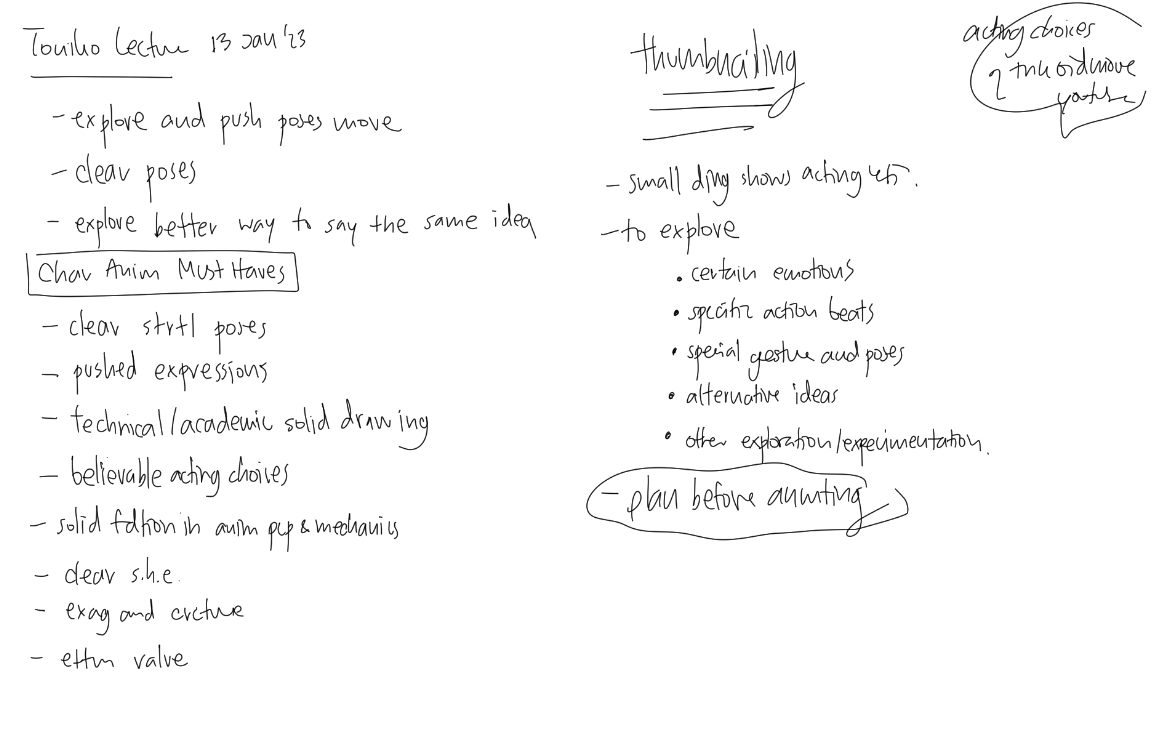 Lecture 13 Jan '23
- explore and push poses move
- clear poses
- explore better way to say the same idea
Char Anim Must Haves
- clear strtl poses
- pushed expressions
- technical/academic solid drawing
- believable acting choices
- solid fdtion in anim pcp & mechanics
- clear s.h.e.
- exag and crcture
- ettm value
thumbnailing
- small dwg shows acting
- to explore
• certain emotions
• specific action beats
• special gesture and poses
• alternative ideas
• other exploration/experimentation.
- plan before
acting choices